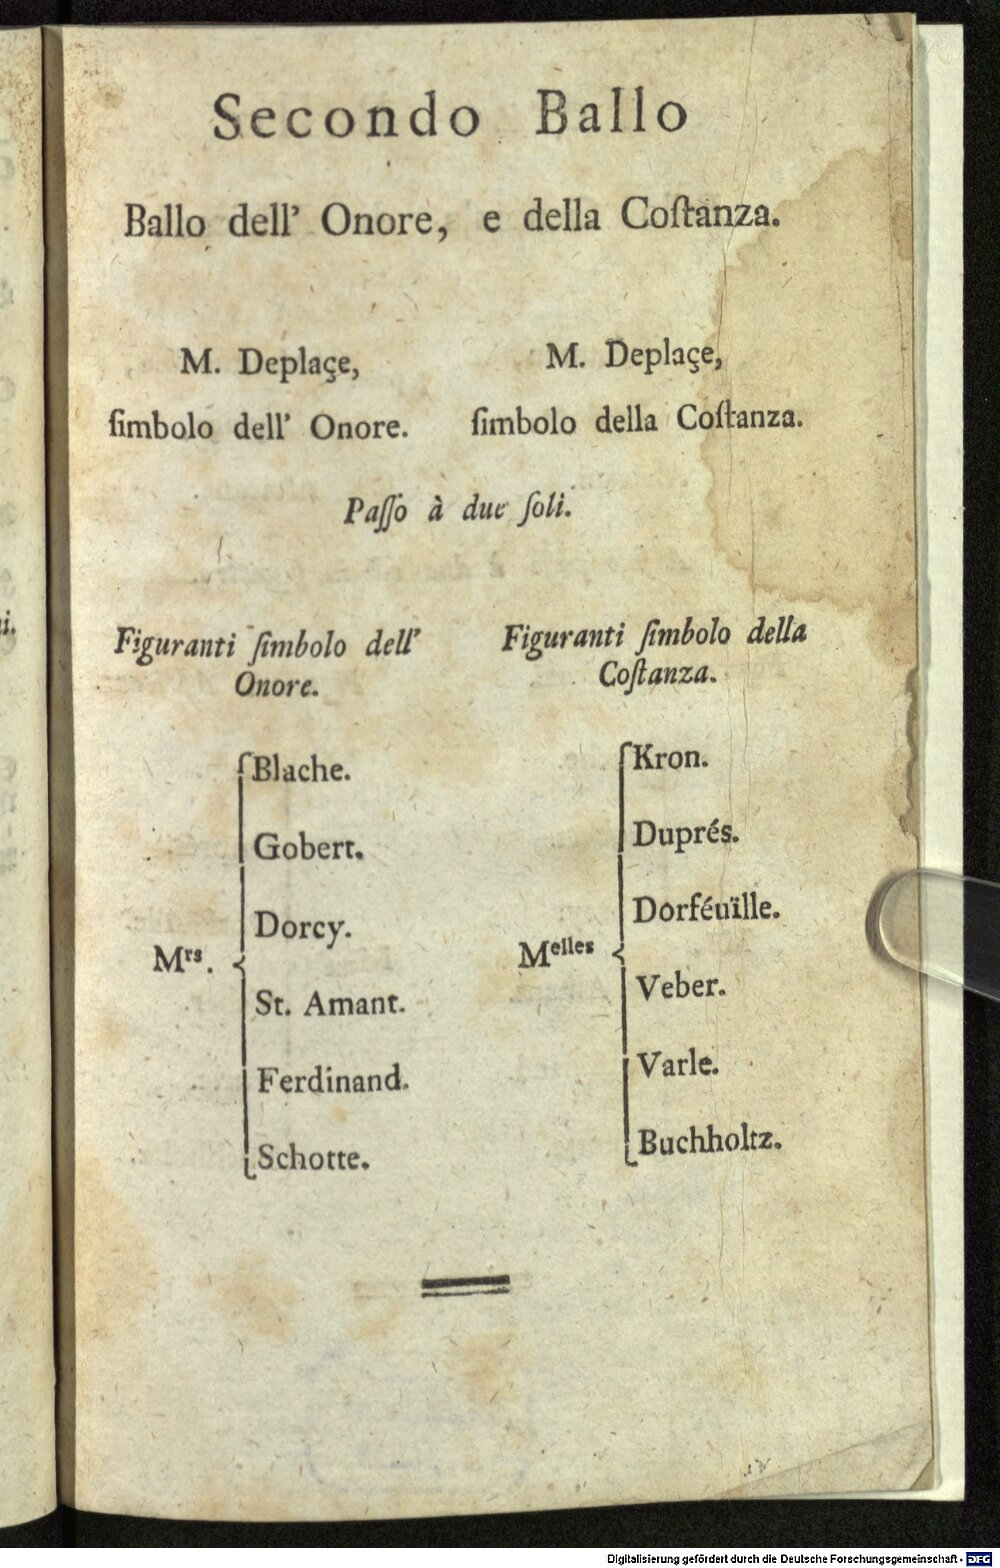 Secondo Ballo
Ballo dell' Onore, e della Coſtanza.
M. Deplaçe,
ſimbolo dell' Onore.
M. Deplaçe,
ſimbolo della Coſtanza.
Paſſo à due ſoli.
Figuranti ſimbolo dell'
Onore.
Mrs.
Blache.
Gobert.
Dorcy.
St. Amant.
Ferdinand.
Schotte.
Figuranti ſimbolo della
Coſtanza.
Melles
Kron.
Duprés.
Dorféuïlle.
Veber.
Varle.
Buchholtz.
i.
Digitalisierung gefördert durch die Deutsche Forschungsgemeinschaft - DFG